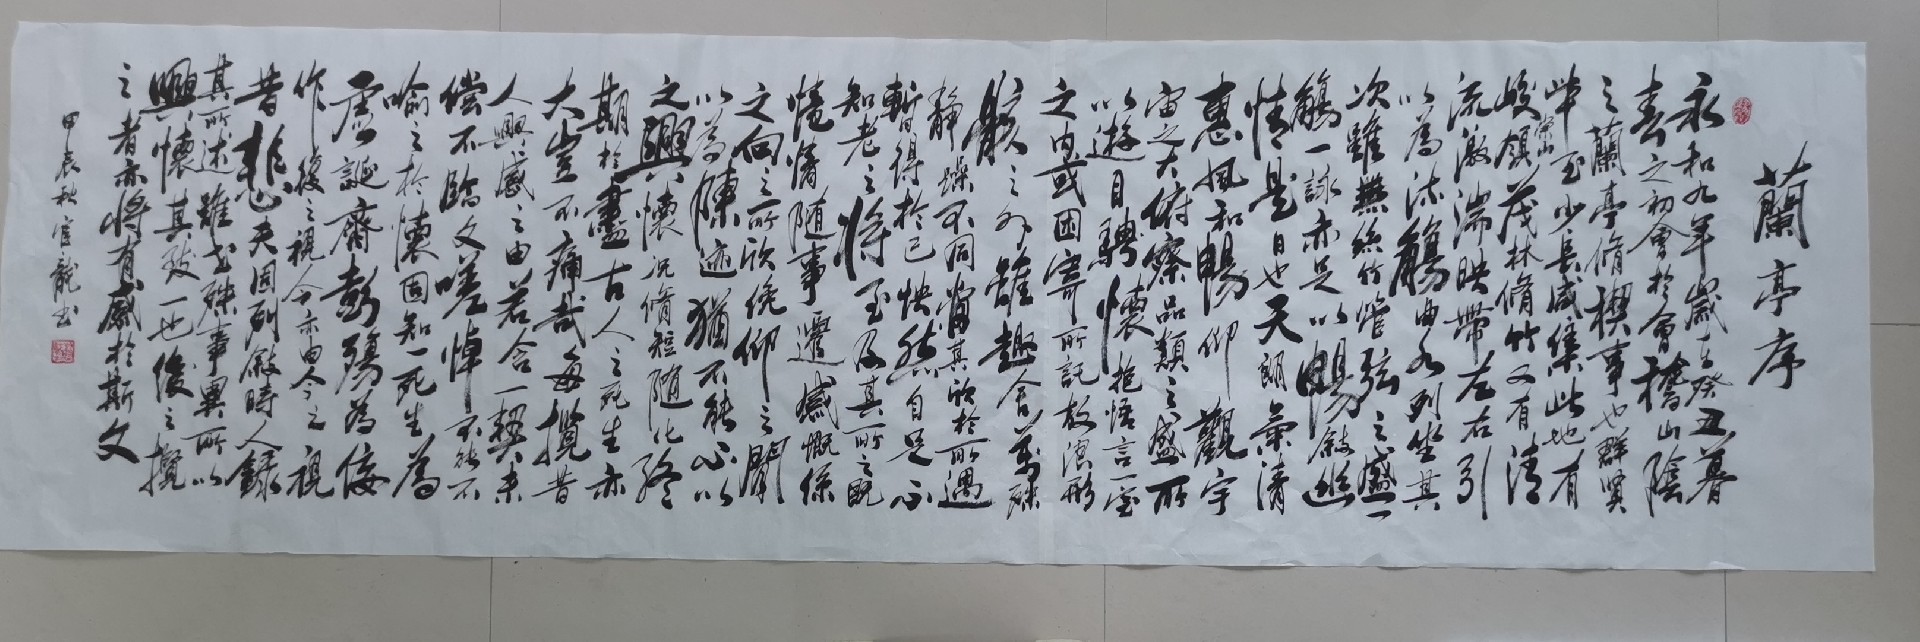 蘭亭序
永和九年歲在癸丑暮
春之初會於會稽山陰
之蘭亭脩稧事也群賢
畢至少長咸集此地有
崇山
峻領茂林脩竹又有清
流激湍暎帶左右引
以為流觴曲水列坐其
次雖無絲竹管弦之盛一
觴一詠亦足以暢敘幽
情是日也天朗氣清
惠風和暢仰觀宇
宙之大俯察品類之盛所
以遊目騁懷
抱悟言一室
之內或因寄所託放浪形
骸之外雖趣舍萬殊
靜躁不同當其欣於所遇
暫得於己快然自足不
知老之將至及其所之既
惓情隨事遷感慨係
之向之所欣俛仰之間
以為陳迹猶不能不以
之興懷況脩短隨化終
期於盡古人之死生亦
大豈不痛哉每攬昔
人興感之由若合一契未
嘗不臨文嗟悼不能不
喻之於懷固知一死生為
虛誕齊彭殤為妄
作後之視今亦由今之視
昔悲夫故列敘時人錄
其所述雖世殊事異所以
興懷其致一也後之攬
之者亦將有感於斯文
甲辰秋官龍书